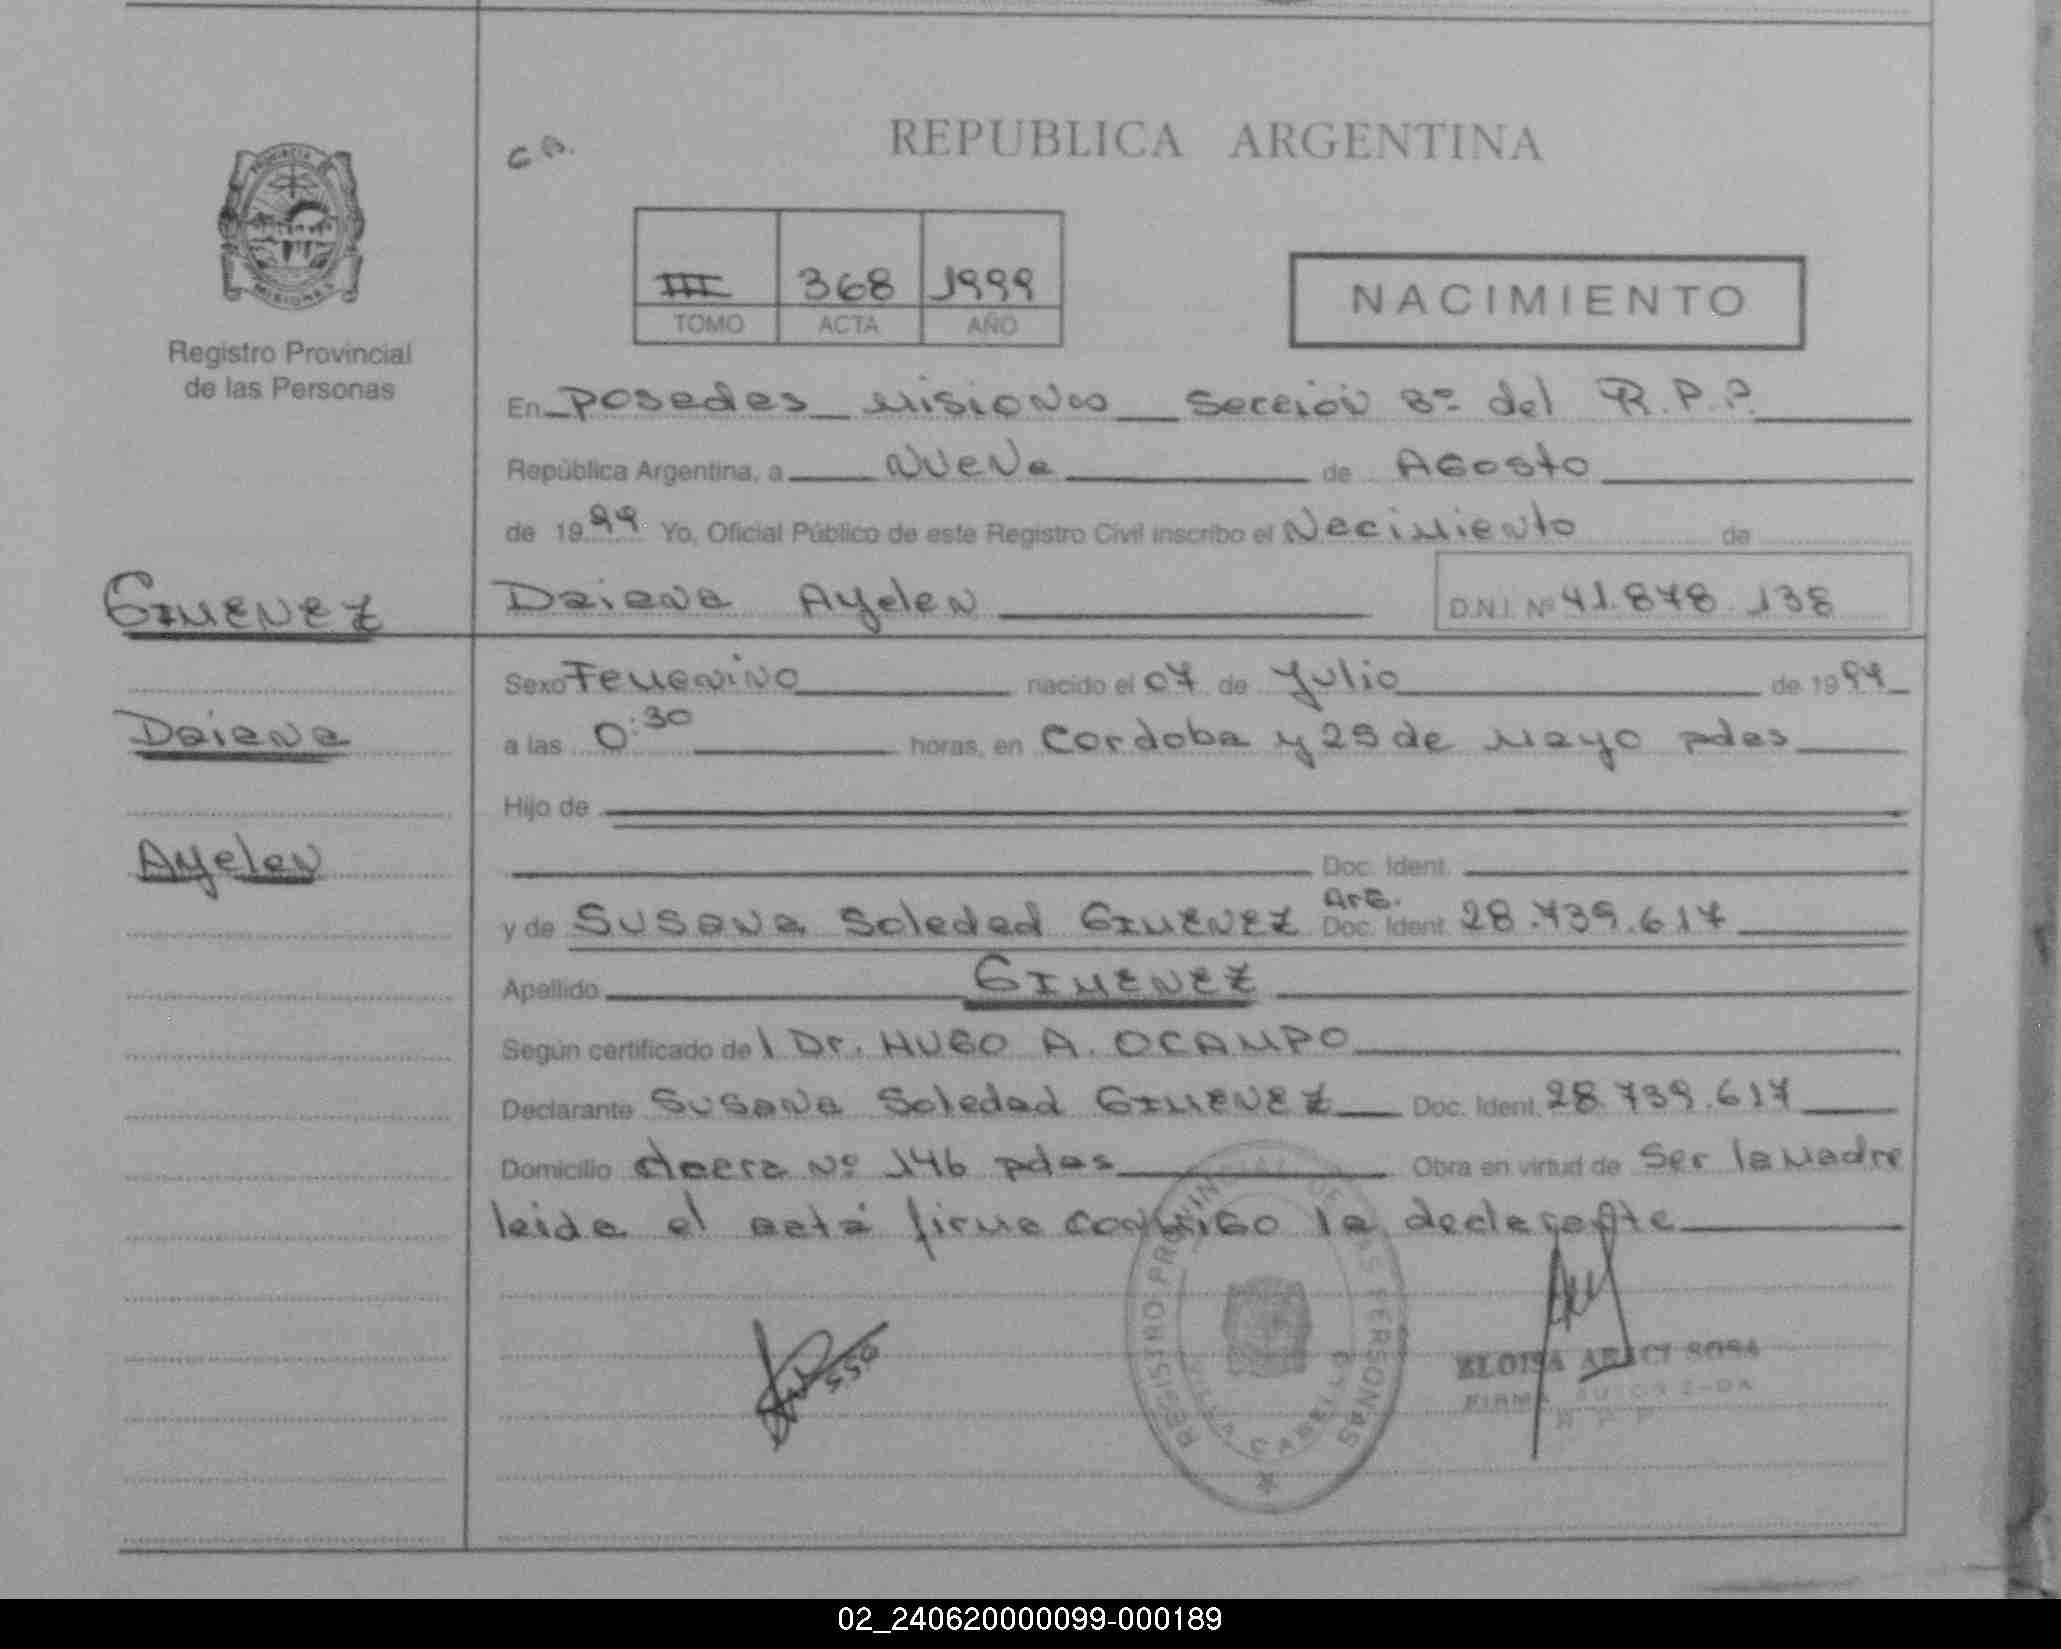 REPUBLICA ARGENTINA
PROVINCIA
MISIONES
Registro Provincial
de las Personas
III 368 1999
TOMO ACTA AÑO
NACIMIENTO
En Posadas Misiones Sección 8º del R.P.P.
República Argentina, a Nueve de Agosto
de 1999 Yo, Oficial Público de este Registro Civil inscribo el Nacimiento de
GIMENEZ
Daiana Ayelen D.N.I. Nº 41.878.138
Sexo Femenino nacido el 07 de Julio de 1999
Daiana
a las 0:30 horas, en Cordoba y 25 de Mayo pdas
Hijo de
Ayelen
Doc. Ident.
y de Susana Soledad GIMENEZ Arg. Doc. Ident. 28.739.617
Apellido GIMENEZ
Según certificado del Dr. HUGO A. OCAMPO
Declarante Susana Soledad GIMENEZ Doc. Ident. 28.739.617
Domicilio chacra Nº 146 pdas Obra en virtud de Ser la Madre
leida el acta firma conmigo la declarante
REGISTRO PROVINCIAL DE LAS PERSONAS
VILLA CABELLO
ELOISA ARACI SOSA
FIRMA AUTORIZADA
02_240620000099-000189